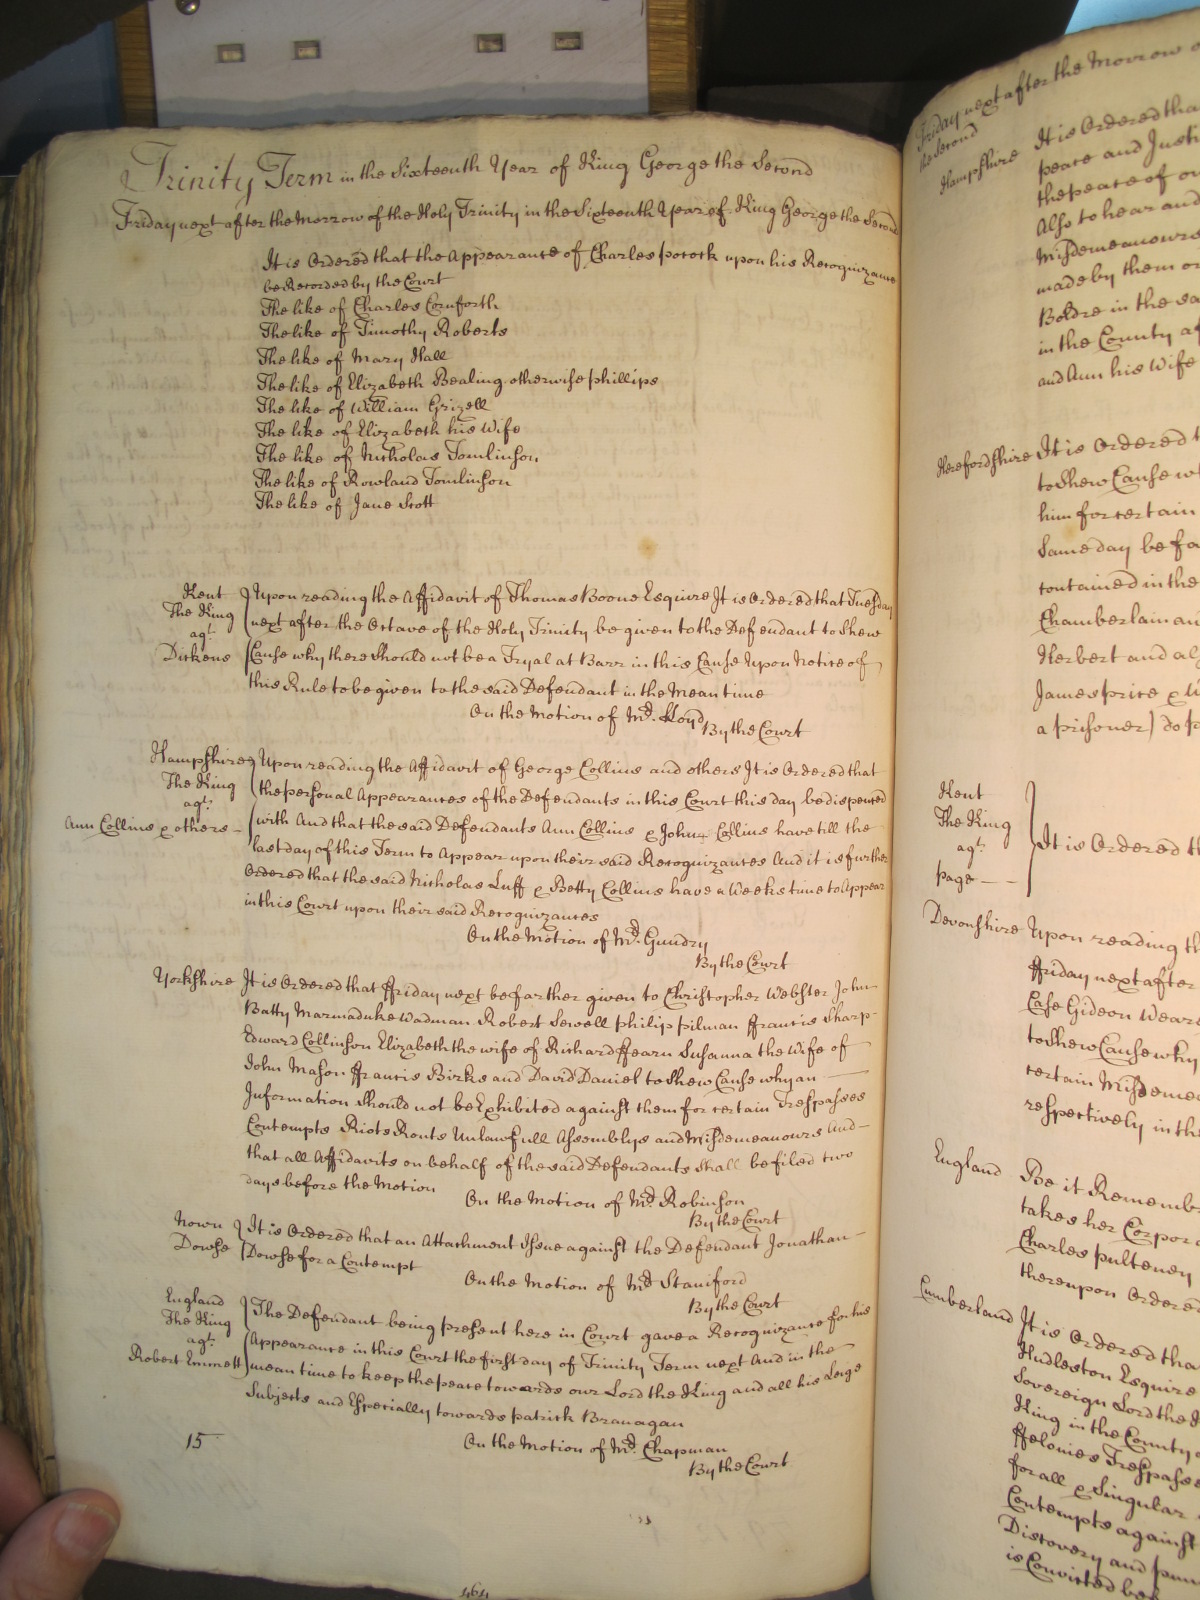 Trinity Term in the Sixteenth Year of King George the Second
Friday next after the Morrow of the Holy Trinity in the Sixteenth Year of King George the Second
It is Ordered that the Appearance of Charles pocock upon his Recognizance
be Recorded by the Court
The like of Charles Cornforth
The like of Timothy Roberts
The like of Mary Hall
The like of Elizabeth Bealing otherwise phillips
The like of William Grizell
The like of Elizabeth his Wife
The like of Nicholas Tomlinson
The like of Rowland Tomlinson
The like of Jane Scott
Kent
The King
agt.
Dickens
Upon reading the Affidavit of Thomas Boone Esquire It is Ordered that Tuesday
next after the Octave of the Holy Trinity be given to the Defendant to Shew
Cause why there Should not be a Tryal at Barr in this Cause Upon Notice of
this Rule to be given to the said Defendant in the Mean time
On the Motion of Mr. Lloyd
By the Court
Hampshire
The King
agt.
Ann Collins & others
Upon reading the Affidavit of George Collins and others It is Ordered that
the personal Appearances of the Defendants in this Court this day be dispenced
with And that the said Defendants Ann Collins & John Collins have till the
last day of this Term to Appear upon their said Recognizances And it is further
Ordered that the said Nicholas Luff & Betty Collins have a Weeks time to Appear
in this Court upon their said Recognizances
On the Motion of Mr. Gundry
By the Court
Yorkshire
It is Ordered that ffriday next be farther given to Christopher Webster John
Batty Marmaduke Wadman Robert Sewell philip pilman ffrancis Sharp
Edward Collinson Elizabeth the wife of Richard ffearn Susanna the Wife of
John Mason ffrancis Birks and David Daniel to Shew Cause why an
Information Should not be Exhibited against them for certain Trespasses
Contempts Riots Routs Unlawfull Assemblys and Misdemeanours And
that all Affidavits on behalf of the said Defendants Shall be filed two
days before the Motion
On the Motion of Mr. Robinson
By the Court
Nown
Dowse
It is Ordered that an Attachment Issue against the Defendant Jonathan
Dowse for a Contempt
On the Motion of Mr. Staniford
By the Court
England
The King
agt.
Robert Emmett
The Defendant being present here in Court gave a Recognizance for his
Appearance in this Court the first day of Trinity Term next And in the
mean time to keep the peace towards our Lord the King and all his Leige
Subjects and Especially towards patrick Branagan
On the Motion of Mr. Chapman
By the Court
15
464
Friday next after the Morrow
the Second
Hampshire
It is Ordered tha
peace and Justi
the peace of ou
Also to hear and
Misdemeanours
made by them or
Boldre in the sa
in the County af
and Ann his Wife
Herefordshire
It is Ordered t
to Shew Cause w
him for certain
Same day be fo
contained in the
Chamberlain an
Herbert and al
James price & W
a prisoner) do p
Kent
The King
agt.
page
It is Ordered th
Devonshire
Upon reading th
ffriday next after
Case Gideon Weard
to Shew Cause why
certain Misdemea
respectively in th
England
Be it Rememb
takes her Corpora
Charles pulteney
thereupon Ordered
Cumberland
It is Ordered tha
Hudleston Esquire
Sovereign Lord the K
King in the County
ffelonies Trespasse
for all & Singular
Contempts against
Discovery and pun
is Convicted bef